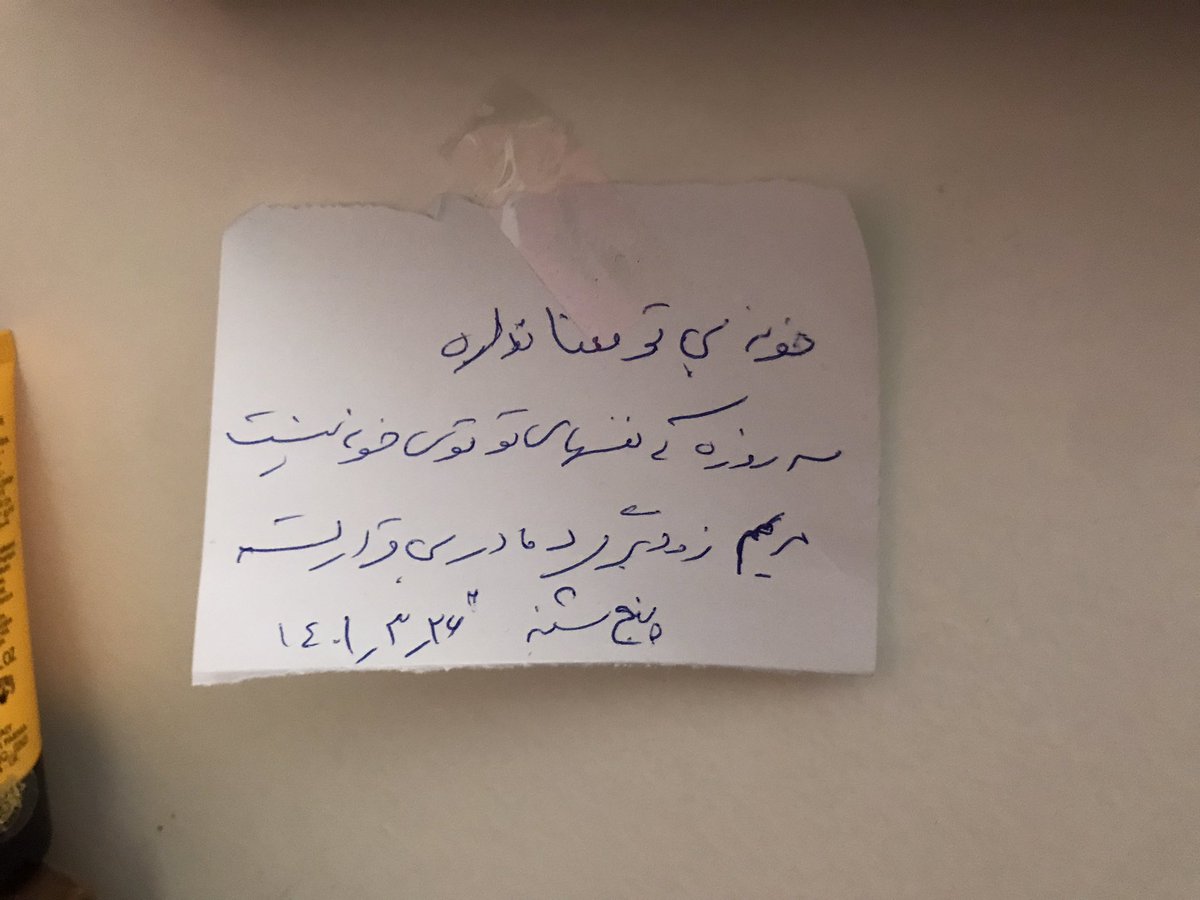 خونه بی تو معنا نداره
سه روزه که نفسهای تو توی خونه نیست
مریم زودتر برگرد مادر بی‌قرارته
پنج شنبه ۱۴۰۱٫۳٫۲۶